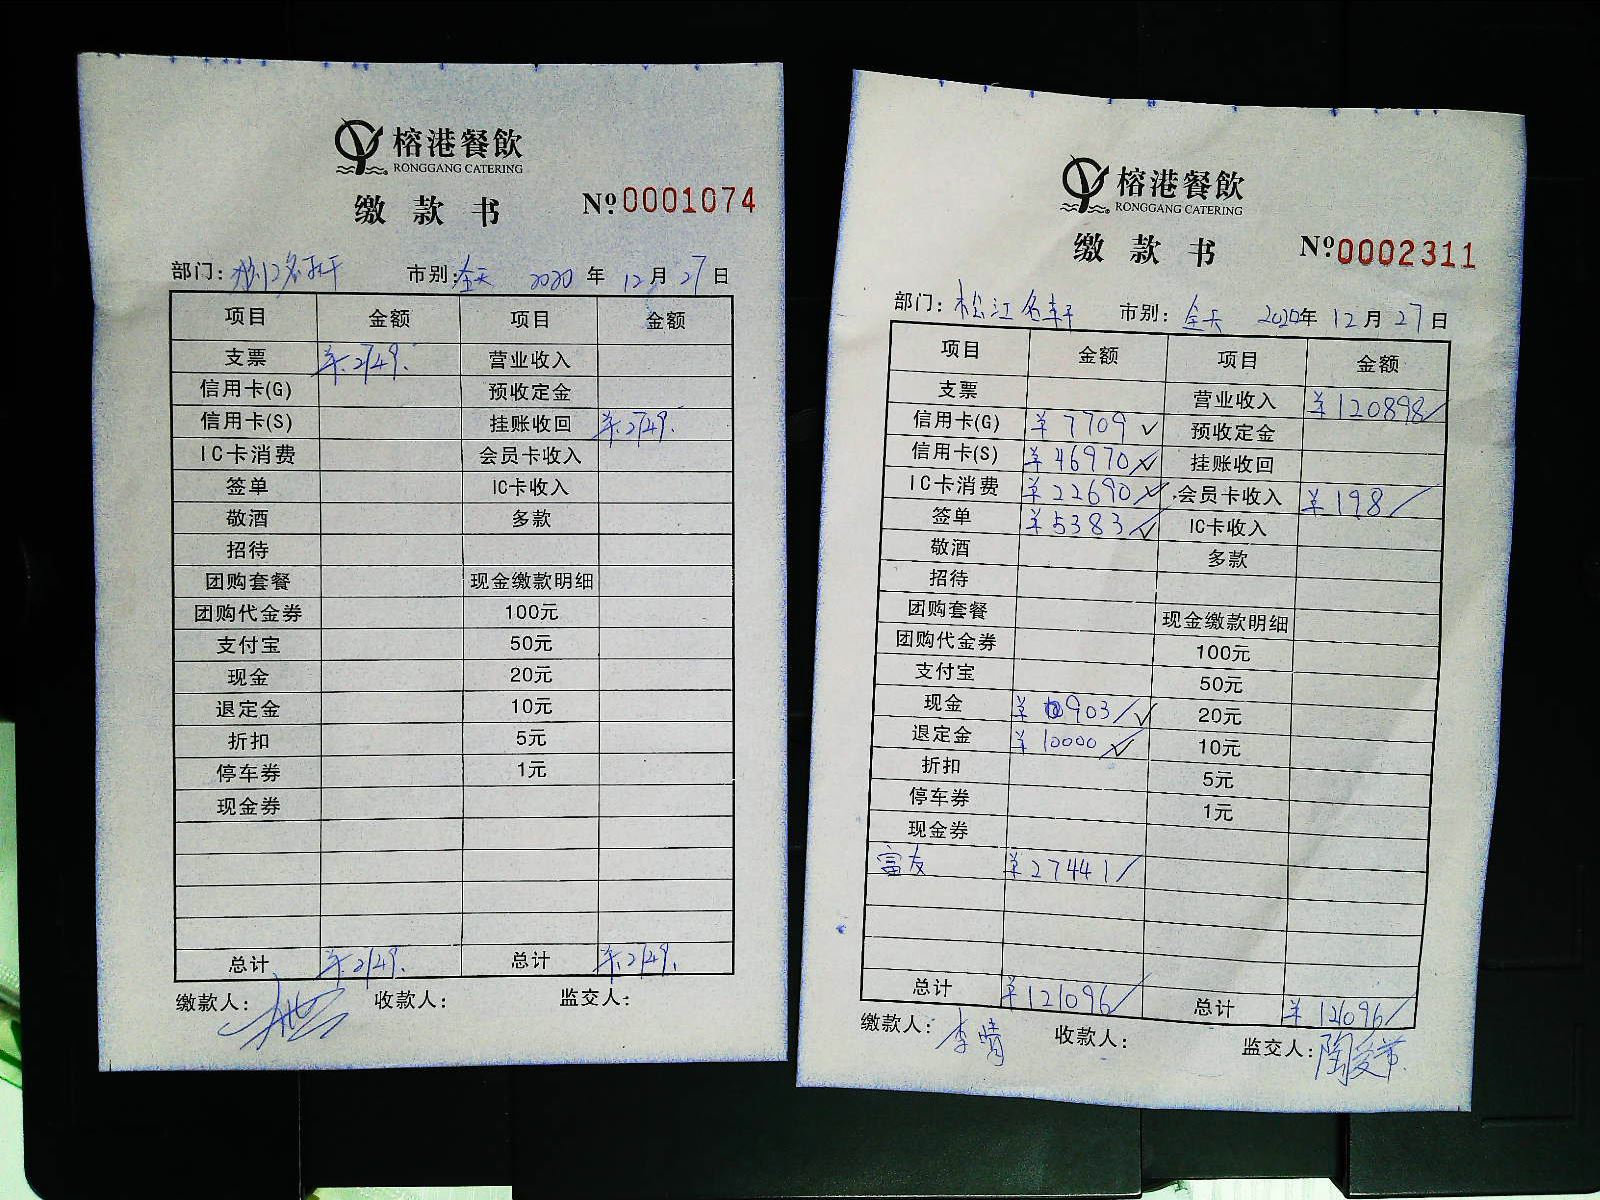 榕港餐飲
RONGGANG CATERING
缴款书 Nº 0001074
部门: 市别: 全天 2020年12月27日
项目 金额 项目 金额
支票 ¥2149. 营业收入
信用卡(G) 预收定金
信用卡(S) 挂账收回 ¥2149.
IC卡消费 会员卡收入
签单 IC卡收入
敬酒 多款
招待
团购套餐 现金缴款明细
团购代金券 100元
支付宝 50元
现金 20元
退定金 10元
折扣 5元
停车券 1元
现金券
总计 ¥2149. 总计 ¥2149.
缴款人: 收款人: 监交人:
榕港餐飲
RONGGANG CATERING
缴款书 Nº 0002311
部门: 松江名轩 市别: 全天 2020年12月27日
项目 金额 项目 金额
支票 营业收入 ¥120898/
信用卡(G) ¥7709✓ 预收定金
信用卡(S) ¥46970✓ 挂账收回
IC卡消费 ¥22690✓ 会员卡收入 ¥198/
签单 ¥5383✓ IC卡收入
敬酒 多款
招待
团购套餐 现金缴款明细
团购代金券 100元
支付宝 50元
现金 ¥903/✓ 20元
退定金 ¥10000✓ 10元
折扣 5元
停车券 1元
现金券
富友 ¥27441/
总计 ¥121096/ 总计 ¥121096/
缴款人: 李晴 收款人: 监交人: